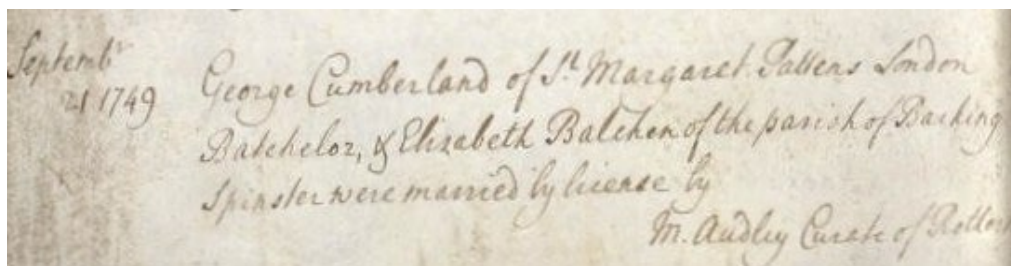 Septembr
21 1749
George Cumberland of St. Margaret Pattens London
Batchelor, & Elizabeth Balchen of the parish of Barking
Spinster were married by license by
M. Audley Curate of